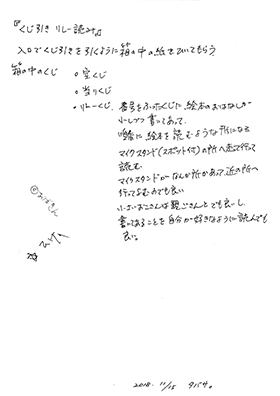 『くじ引き リレー読み』
入口でくじ引きを引くように箱の中の紙をひいてもらう
箱の中のくじ
○空くじ
○当りくじ
○リレーくじ
番号をふったくじに、絵本のおはなしが
書いてあって、
に絵本を読むような形になる
マイクスタンド(スポット付)の所へ走って行って
読む
マイクスタンドが なんか所かあって、近の所へ
行ってよむのでも良い
小さいお子さんは親ごさんとでも良いし、
書いてあることを自分が好きなように読んでも
良い。
2018. 11/15